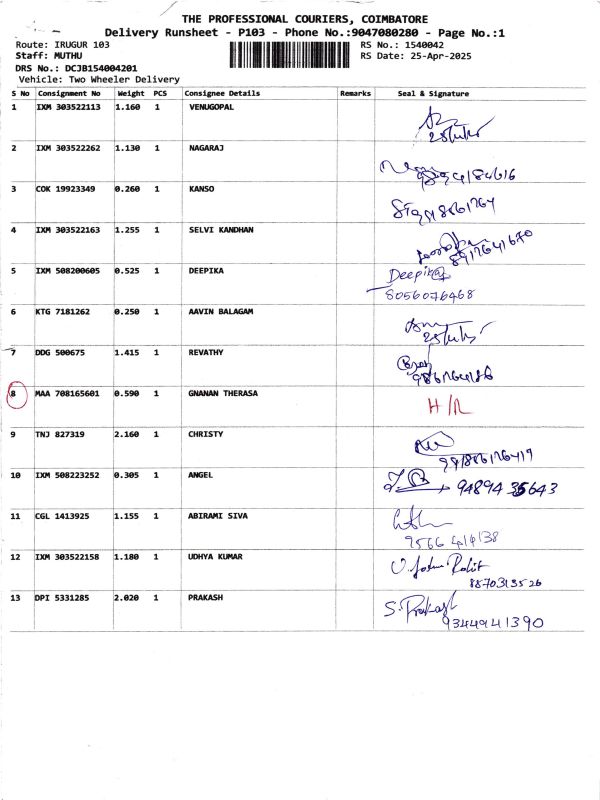 THE PROFESSIONAL COURIERS, COIMBATORE
Delivery Runsheet - P103 - Phone No.:9047080280 - Page No.:1
Route: IRUGUR 103 RS No.: 1540042
Staff: MUTHU RS Date: 25-Apr-2025
DRS No.: DCJB154004201
Vehicle: Two Wheeler Delivery
S No Consignment No Weight PCS Consignee Details Remarks Seal & Signature
1 IXM 303522113 1.160 1 VENUGOPAL
2 IXM 303522262 1.130 1 NAGARAJ
3 COK 19923349 0.260 1 KANSO
4 IXM 303522163 1.255 1 SELVI KANDHAN
5 IXM 508200605 0.525 1 DEEPIKA Deepika
8056076468
6 KTG 7181262 0.250 1 AAVIN BALAGAM
7 DDG 500675 1.415 1 REVATHY
8 MAA 708165601 0.590 1 GNANAN THERASA
9 TNJ 827319 2.160 1 CHRISTY
10 IXM 508223252 0.305 1 ANGEL
11 CGL 1413925 1.155 1 ABIRAMI SIVA
12 IXM 303522158 1.180 1 UDHYA KUMAR
8870313526
13 DPI 5331285 2.020 1 PRAKASH S. Prakash
9344941390